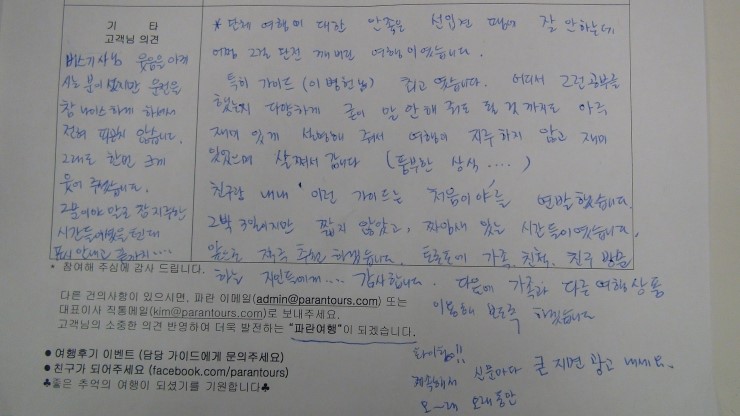 기 타
고객님 의견
버스기사님 웃음을 아끼
시는 분이 셨지만 운전을
참 나이스하게 하셔서
전혀 피곤치 않습니다.
그래도 한번 크게
웃어 주셨습니다.
그분이야 말로 참 지루한
시간들이었을텐데
표시 안내고 끝까지 ....
* 단체 여행에 대한 안좋은 선입견 땜에 잘 안하는데
어쩜 그걸 단전 깨버린 여행이였습니다.
특히 가이드 (이병헌님) 최고 였습니다. 어디서 그런 공부를
했는지 다양하게 굳이 말 안해 줘도 될 것 까지도 아주
재미 있게 설명해 줘서 여행이 지루하지 않고 재미
있었으며 살쪄서 갑니다 (풍부한 상식 ....)
친구랑 내내 이런 가이드는 처음이야를 연발했습니다.
2박 3일이지만 짧지 않았고, 짜임새 있는 시간들이였습니다.
앞으로 적극 추천하겠습니다. 토론토에 가족, 친척, 친구 방문
하는 지인들에게 .... 감사합니다. 다음에 가족과 다른 여행 상품
이용해 보도록 하겠습니다
* 참여해 주심에 감사 드립니다.
다른 건의사항이 있으시면, 파란 이메일(admin@parantours.com) 또는
대표이사 직통메일(kim@parantours.com)로 보내주세요.
고객님의 소중한 의견 반영하여 더욱 발전하는 "파란여행"이 되겠습니다.
화이팅!!
계속해서 신문마다 큰 지면 광고 내세요.
오~래 오래동안
● 여행후기 이벤트 (담당 가이드에게 문의주세요)
● 친구가 되어주세요 (facebook.com/parantours)
♣좋은 추억의 여행이 되셨기를 기원합니다♣